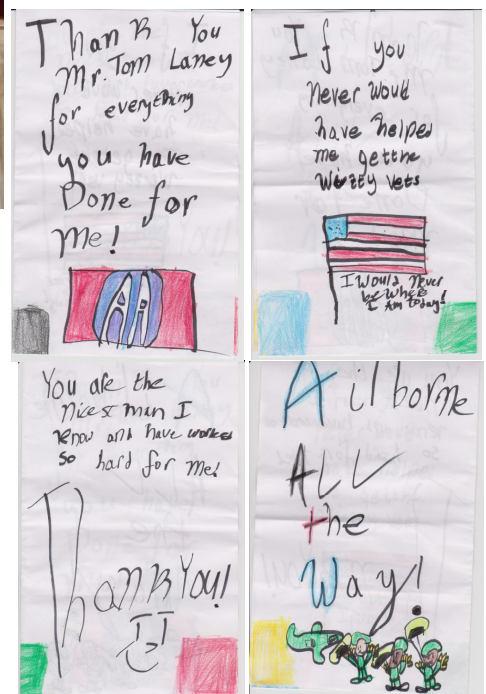 Thank You
Mr. Tom Laney
for everything
you have
Done for
Me!
AA
If you
never would
have helped
me getthe
Wizzy Vets
I Would never
be where
I Am today!
You are the
nicest man I
know and have worked
so hard for me!
Thank You!
Airborne
ALL
the
Way!